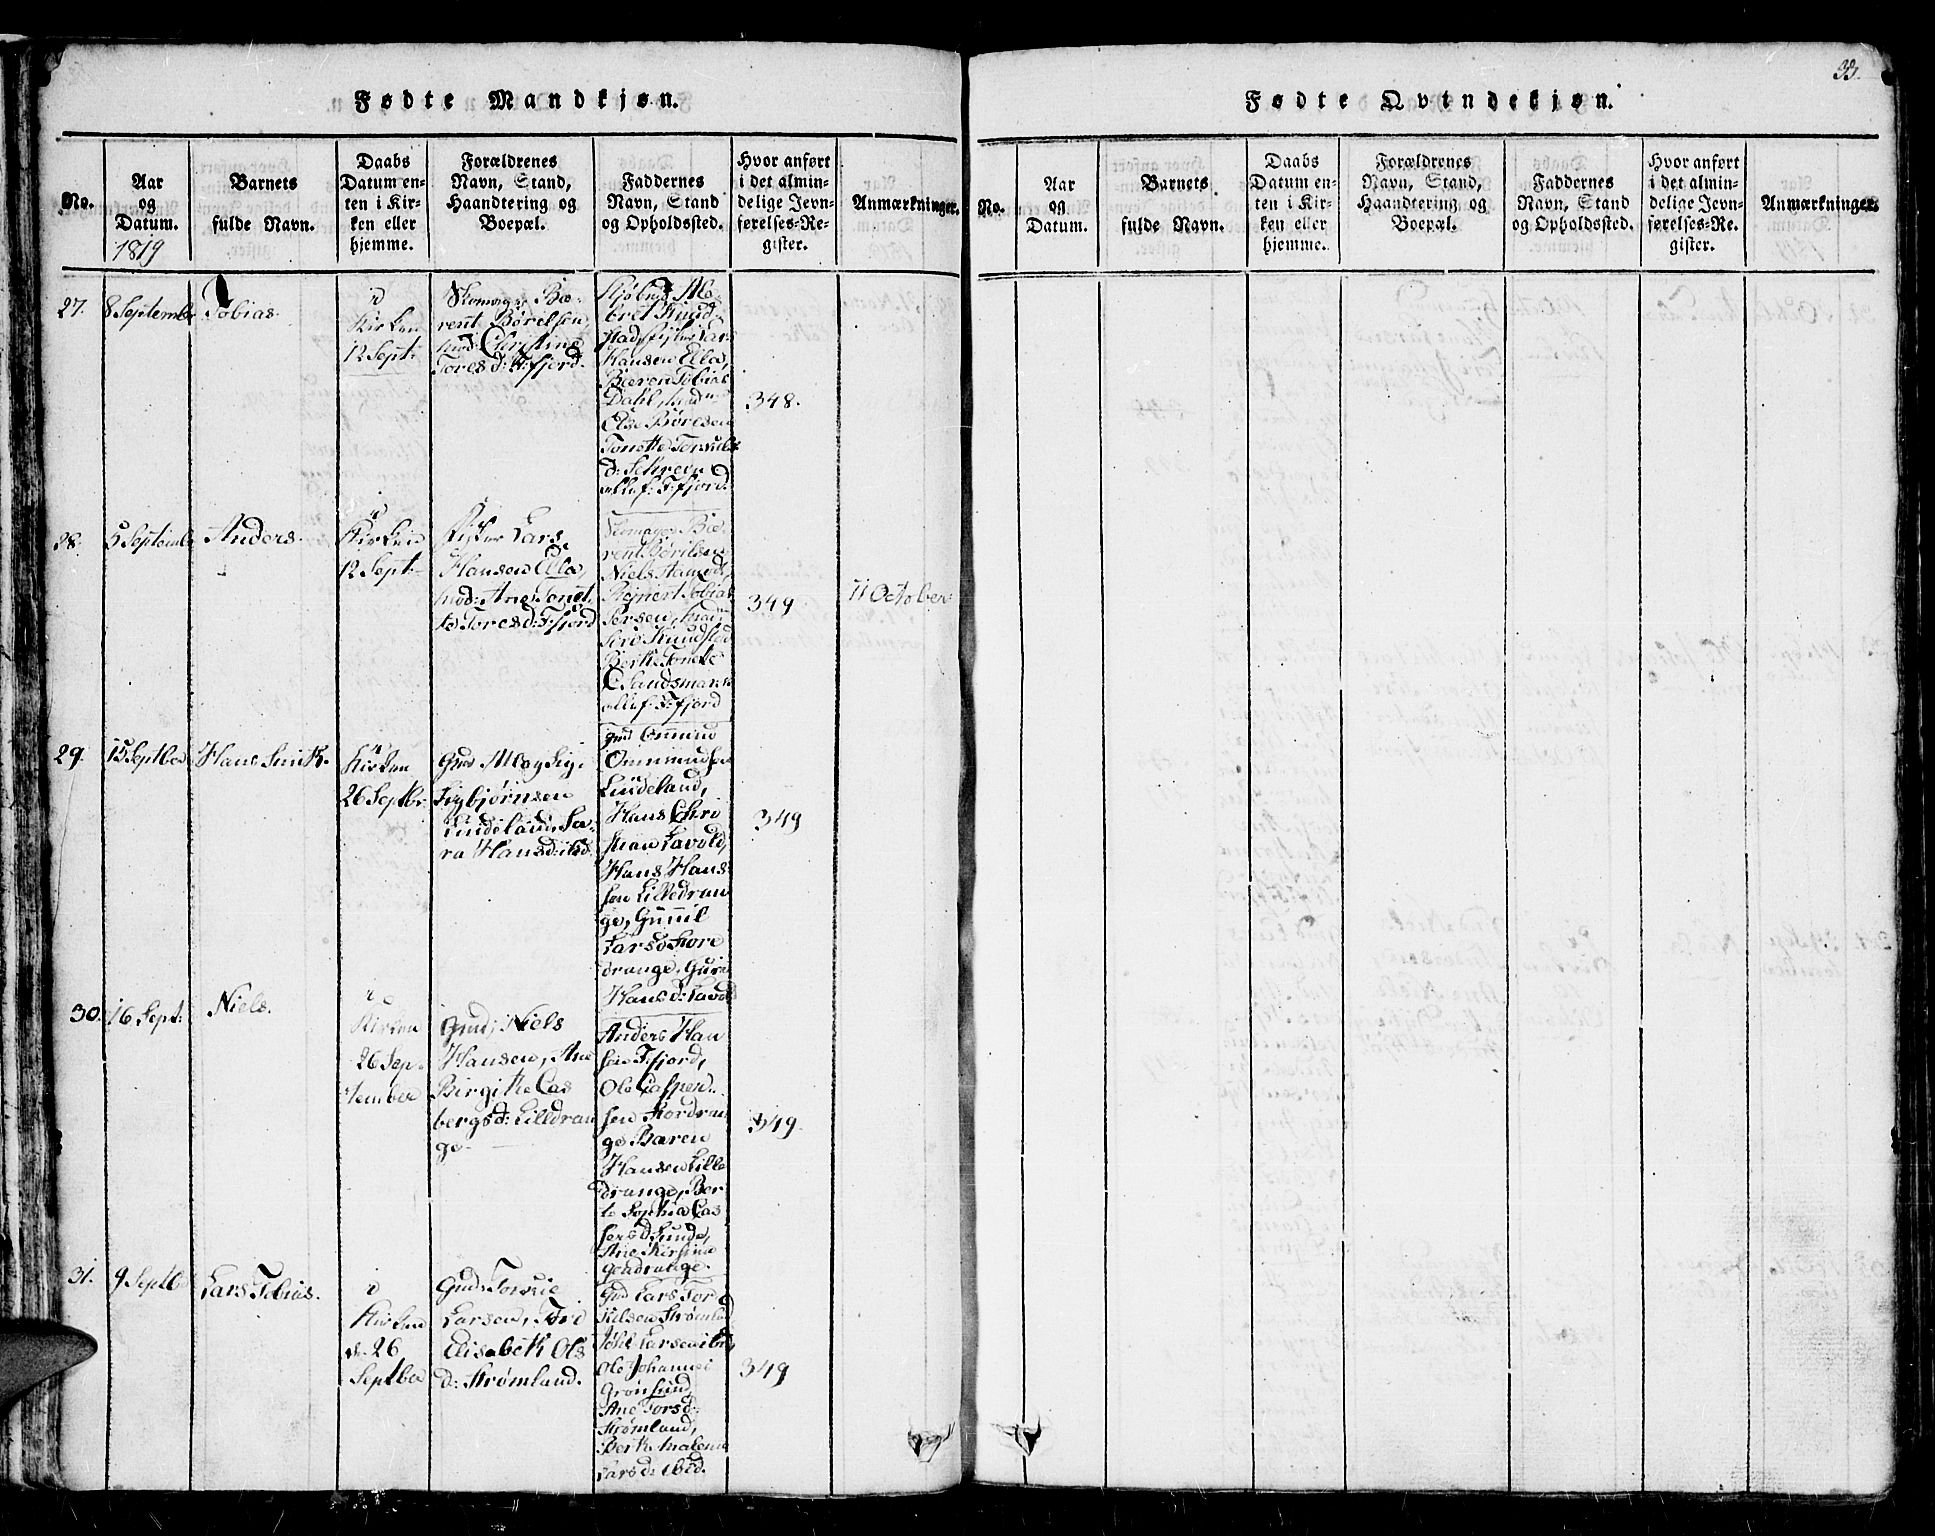 33.
Fødte Mandkjøn.
No.
Aar
og
Datum.
1819
Barnets
fulde Navn.
Daabs
Datum en-
ten i Kir-
ken eller
hjemme.
Forældrenes
Navn, Stand,
Haandtering og
Boepæl.
Faddernes
Navn, Stand
og Opholdssted.
Hvor anført
i det almin-
delige Jevn-
førelses-Re-
gister.
Anmærkninger.
27.
8 Septembr
Tobias.
i
Kirken
12 Sept:
Skomager Bæ-
rent Børelsen,
mod: Christine
Tores d: F:fjord.
bret Knud
Hansen Eila,
Bæren Tobias
Dahl,
Else Børesen
Tonette
F:fjord.
348.
28.
5 Septembr
Anders.
i
Kirken
12 Sept:
Lars
Hansen Eila,
mod: Ane Tonet-
te Toresd: F:fjord
Skomager Bæ-
rent Børilsen
Niels
Reinert Tobias
Berthe Tonette
F:fjord
349
11 October
29.
15 Septber
Hans Smith.
i
Kirken
26 Septbr.
Sigbjørnsen
Lindeland, Sa-
ra Hansd: ibd.
gmd Ommund
Ommundsen
Lindeland,
Hans Chri
stian Favold,
Hans Hans
sen Lilledran
ge, Gunnil
Larsd Store
drange, Guri
Hansd: Favold
349
30.
16 Sept:
Niels.
i
Kirken
26 Sep-
tember
Gmd: Niels
Hansen, Ane
Birgithe Cas
bergsd: Lilledran
ge.
Anders Han
sen F:fjord,
Ole Caspen-
sen Stordran
ge Bæren
Hansen Lille
drange, Ber
te Sophia Cas
persd Sunde,
Ane Kirstine
349.
31.
9 Septb
Lars Tobias.
i
Kirken
d. 26
Septber
Gmd: Torkie
Larsen, Torid
Elisabeth Ols
d: Strømland.
Gmd Lars Tor
kilsen Strømland
Larsen ibd,
Ole Johannes
Grønsund,
Ane Torsd:
Strømland,
Berthe Malene
Larsd: ibid.
349
Fødte Qvindekjøn.
No.
Aar
og
Datum.
Barnets
fulde Navn.
Daabs
Datum en-
ten i Kir-
ken eller
hjemme.
Forældrenes
Navn, Stand,
Haandtering og
Boepæl.
Faddernes
Navn, Stand
og Opholdssted.
Hvor anført
i det almin-
delige Jevn-
førelses-Re-
gister.
Anmærkninger.